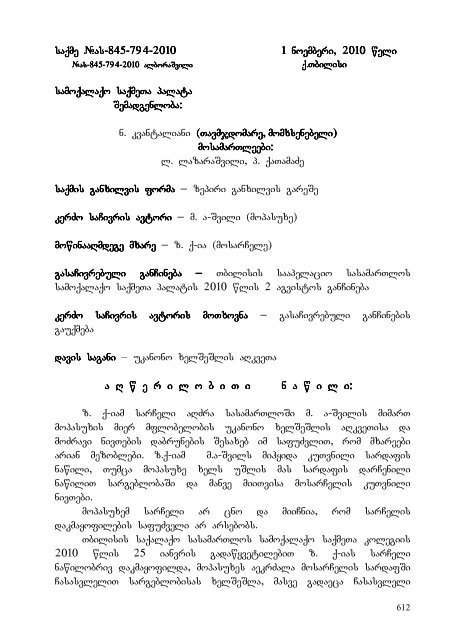 საქმე №ას-845-794-2010 1 ნოემბერი, 2010 წელი
№ას-845-794-2010 ალბორაშვილი ქ.თბილისი
სამოქალაქო საქმეთა პალატა
შემადგენლობა:
ნ. კვანტალიანი (თავმჯდომარე, მომხსენებელი)
მოსამართლეები:
ლ. ლაზარაშვილი, პ. ქათამაძე
საქმის განხილვის ფორმა – ზეპირი განხილვის გარეშე
კერძო საჩივრის ავტორი – მ. ა-შვილი (მოპასუხე)
მოწინააღმდეგე მხარე – ზ. ქ-ია (მოსარჩელე)
გასაჩივრებული განჩინება – თბილისის სააპელაციო სასამართლოს
სამოქალაქო საქმეთა პალატის 2010 წლის 2 აგვისტოს განჩინება
კერძო საჩივრის ავტორის მოთხოვნა – გასაჩივრებული განჩინების
გაუქმება
დავის საგანი – უკანონო ხელშეშლის აღკვეთა
ა ღ წ ე რ ი ლ ო ბ ი თ ი ნ ა წ ი ლ ი:
ზ. ქ-იამ სარჩელი აღძრა სასამართლოში მ. ა-შვილის მიმართ
მოპასუხის მიერ მფლობელობის უკანონო ხელშეშლის აღკვეთისა და
მოძრავი ნივთების დაბრუნების შესახებ იმ საფუძვლით, რომ მხარეები
არიან მეზობლები. ზ.ქ-იამ მ.ა-შვილს მიჰყიდა კუთვნილი სარდაფის
ნაწილი, თუმცა მოპასუხე ხელს უშლის მას სარდაფის დარჩენილი
ნაწილით სარგებლობაში და მანვე მიითვისა მოსარჩელის კუთვნილი
ნივთები.
მოპასუხემ სარჩელი არ ცნო და მიიჩნია, რომ სარჩელის
დაკმაყოფილების საფუძველი არ არსებობს.
თბილისის საქალაქო სასამართლოს სამოქალაქო საქმეთა კოლეგიის
2010 წლის 25 იანვრის გადაწყვეტილებით ზ. ქ-იას სარჩელი
ნაწილობრივ დაკმაყოფილდა, მოპასუხეს აეკრძალა მოსარჩელის სარდაფში
ჩასასვლელით სარგებლობისას ხელშეშლა, მასვე გადაეცა ჩასასვლელი
612